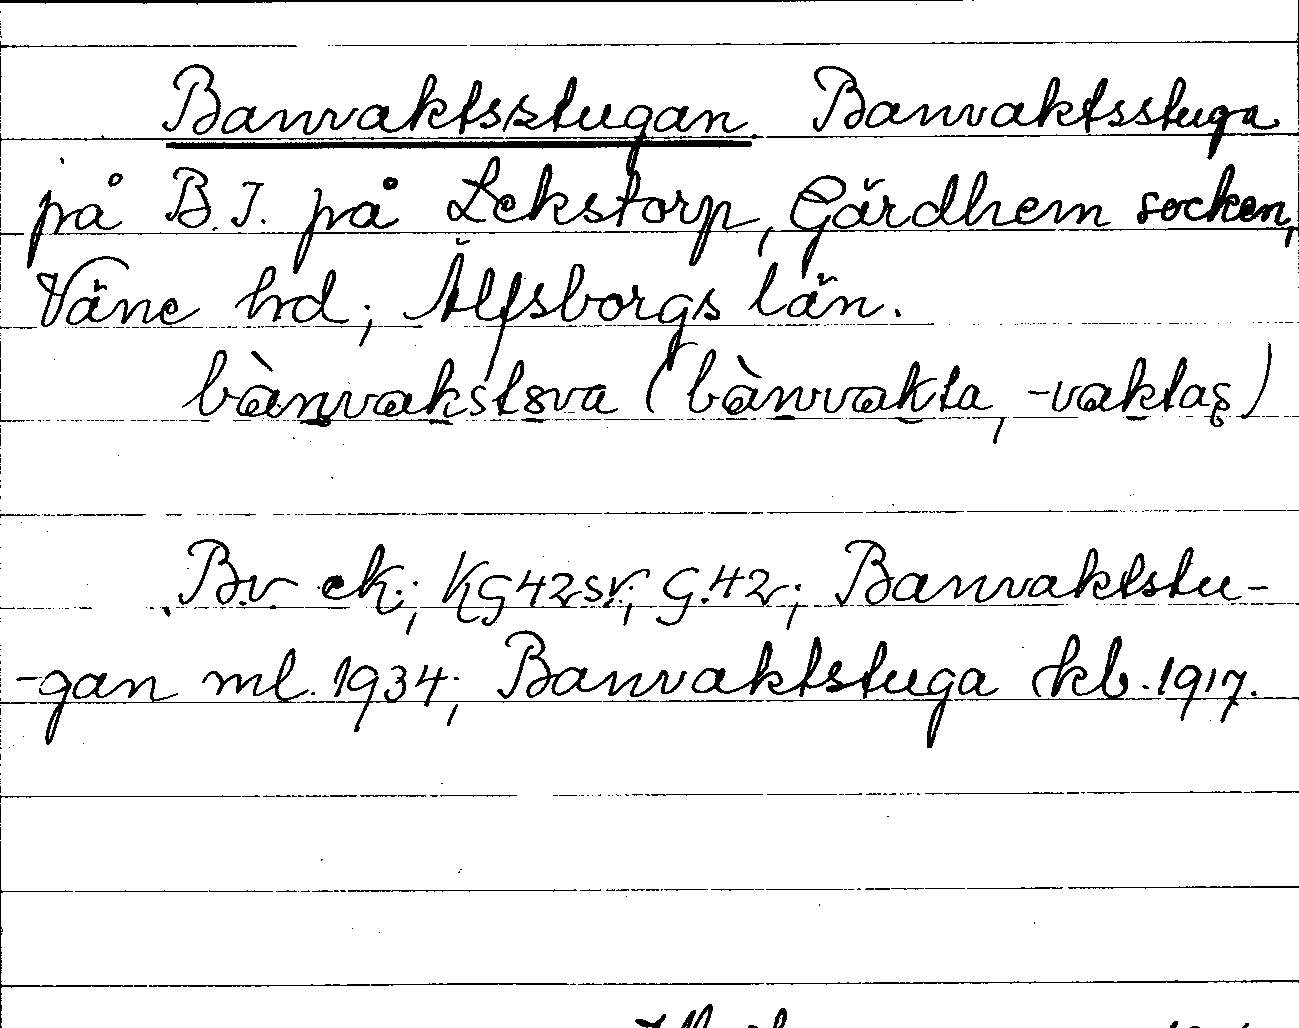 Banvaktsstugan. Banvaktsstuga
på B.J. på Lekstorp, Gärdhem socken,
Väne hd, Älfsborgs län.
bànvakstova (bànvakta, -vaktas)
B.v. ek.; KG42sv; G.42; Banvaktstu-
-gan ml. 1934; Banvaktstuga kb. 1917.